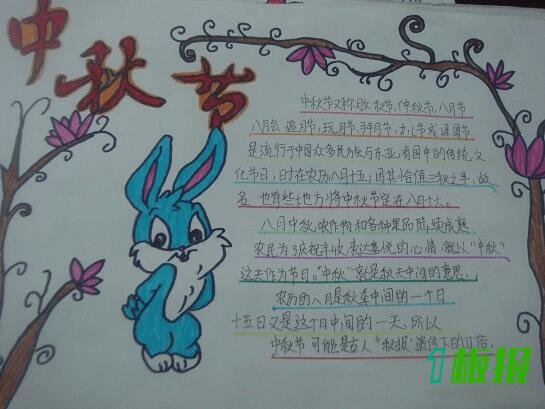 中秋节
中秋节又称月夕、秋节、仲秋节、八月节
八月会、追月节、玩月节、拜月节、女儿节或团圆节
是流行于中国众多民族与东亚诸国中的传统文
化节日,时在农历八月十五;因其恰值三秋之半,故
名,也有些地方将中秋节定在八月十六。
八月中秋,农作物和各种果品陆续成熟
农民为了庆祝丰收,表达喜悦的心情,就以“中秋”
这天作为节日。“中秋”就是秋天中间的意思,
农历的八月是秋季中间的一个月
十五日又是这个月中间的一天,所以
中秋节可能是古人“秋报”遗传下的习俗.
1板报